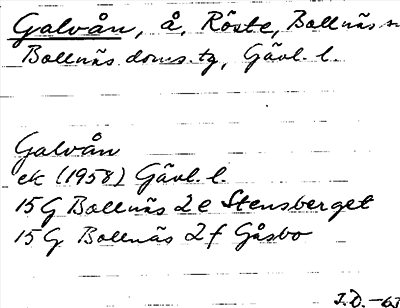 Galvån, å, Röste, Bollnäs sn
Bollnäs doms.tg, Gävl. l.
Galvån
ek (1958) Gävl. l.
15 G Bollnäs 2 e Stensberget
15 G Bollnäs 2 f Gåsbo
I.D. -63